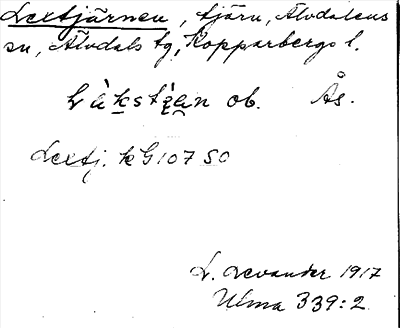 Lextjärnen, tjärn, Älvdalens
sn, Älvdals tg, Kopparbergs l.
ob. Ås.
Lextj. kG107 SO
L. Levander 1917
Ulma 339:2.